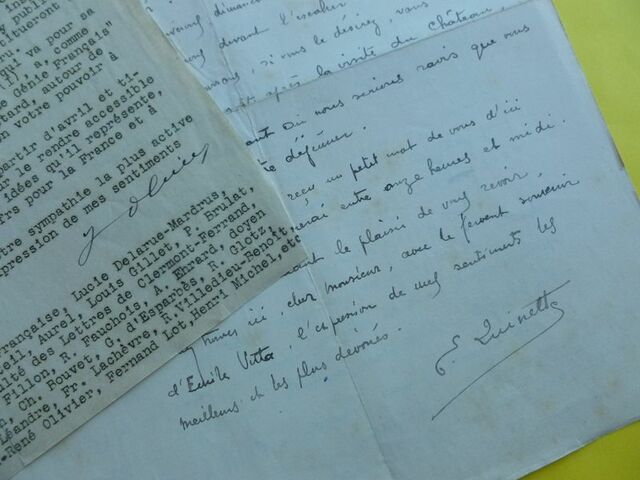 publi
titueront
qui va pour sa
(!), a, comme
e génie Français"
otard, autour de
on votre pouvoir à
partir d'avril et ti-
r le rendre accessible
idées qu'il représente,
ers pour la France et à
tre sympathie la plus active
pression de mes sentiments
Française, Lucie Delarue-Mardrus,
reil, Aurel, Louis Gillet, P. Brulat,
lté des Lettres de Clermont-Ferrand,
Fillon, R. Fauchois, A. Ehrard, doyen
Ch. Rouvet, G. d'Esparbès, R. Glotz,
Léandre, Fr. Lachèvre, R. Villedieu-Benoit,
-René Olivier, Fernand Lot, Henri Michel, etc
dimanc
devant l'escalier
, si vous le désirez, vous
après la visite du château,
Si nous serions ravis que vous
déjeûner.
reçu un petit mot de vous d'ici
entre onze heures et midi.
le plaisir de vous revoir,
ici, cher Monsieur, avec le fervent souvenir
d'Emile Vitta, l'expression de mes sentiments les
meilleurs et les plus dévoués.